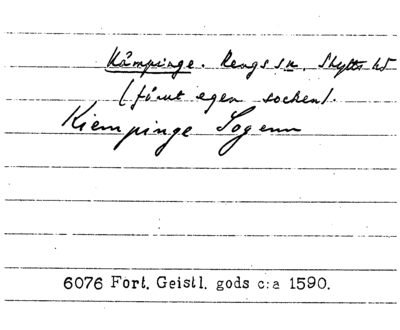 Kämpinge. Rengs sn. Skytts hd
(förut egen socken).
Kiempinge Sogenn
6076 Fort. Geistl. gods c:a 1590.